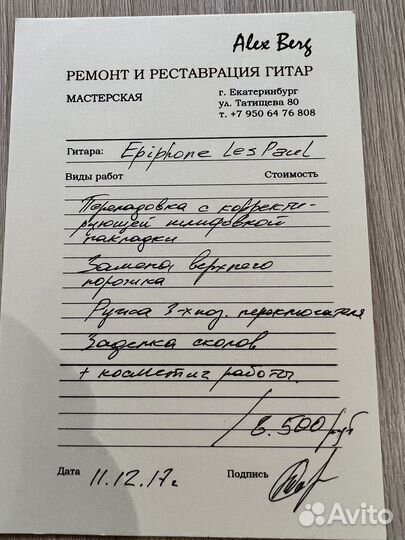 Alex Berg
РЕМОНТ И РЕСТАВРАЦИЯ ГИТАР
МАСТЕРСКАЯ
г. Екатеринбург
ул. Татищева 80
т. +7 950 64 76 808
Гитара: Epiphone Les Paul
Виды работ Стоимость
Переладовка с корректи-
рующей шлифовкой
накладки
Замена верхнего
порожка
Ручка 3-хпоз. переключателя
Заделка сколов
+ косметич работы.
8.500 руб
Дата 11.12.17г Подпись
Avito